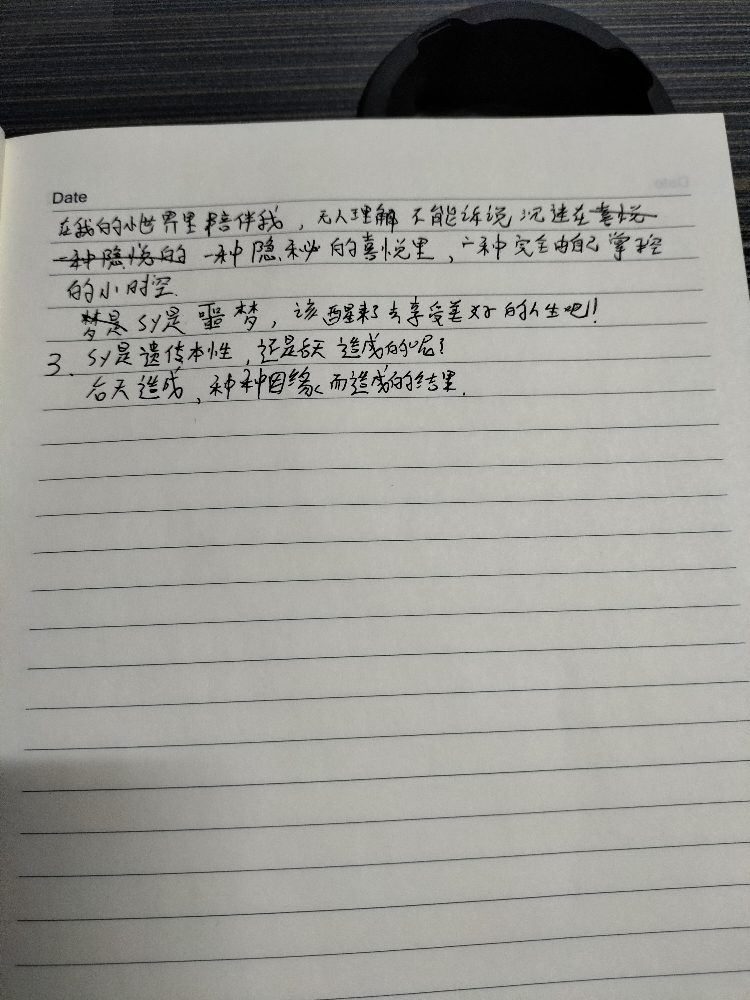 Date
在我的小世界里陪伴我，无人理解 不能诉说 沉迷在喜悦
一种隐悦的 一种隐秘的喜悦里，一种完全由自己掌控
的小时空.
梦是 SY是噩梦，该醒来了去享受美好的人生吧！
3. SY是遗传本性，还是后天造成的呢？
后天造成，种种因缘而造成的结果.